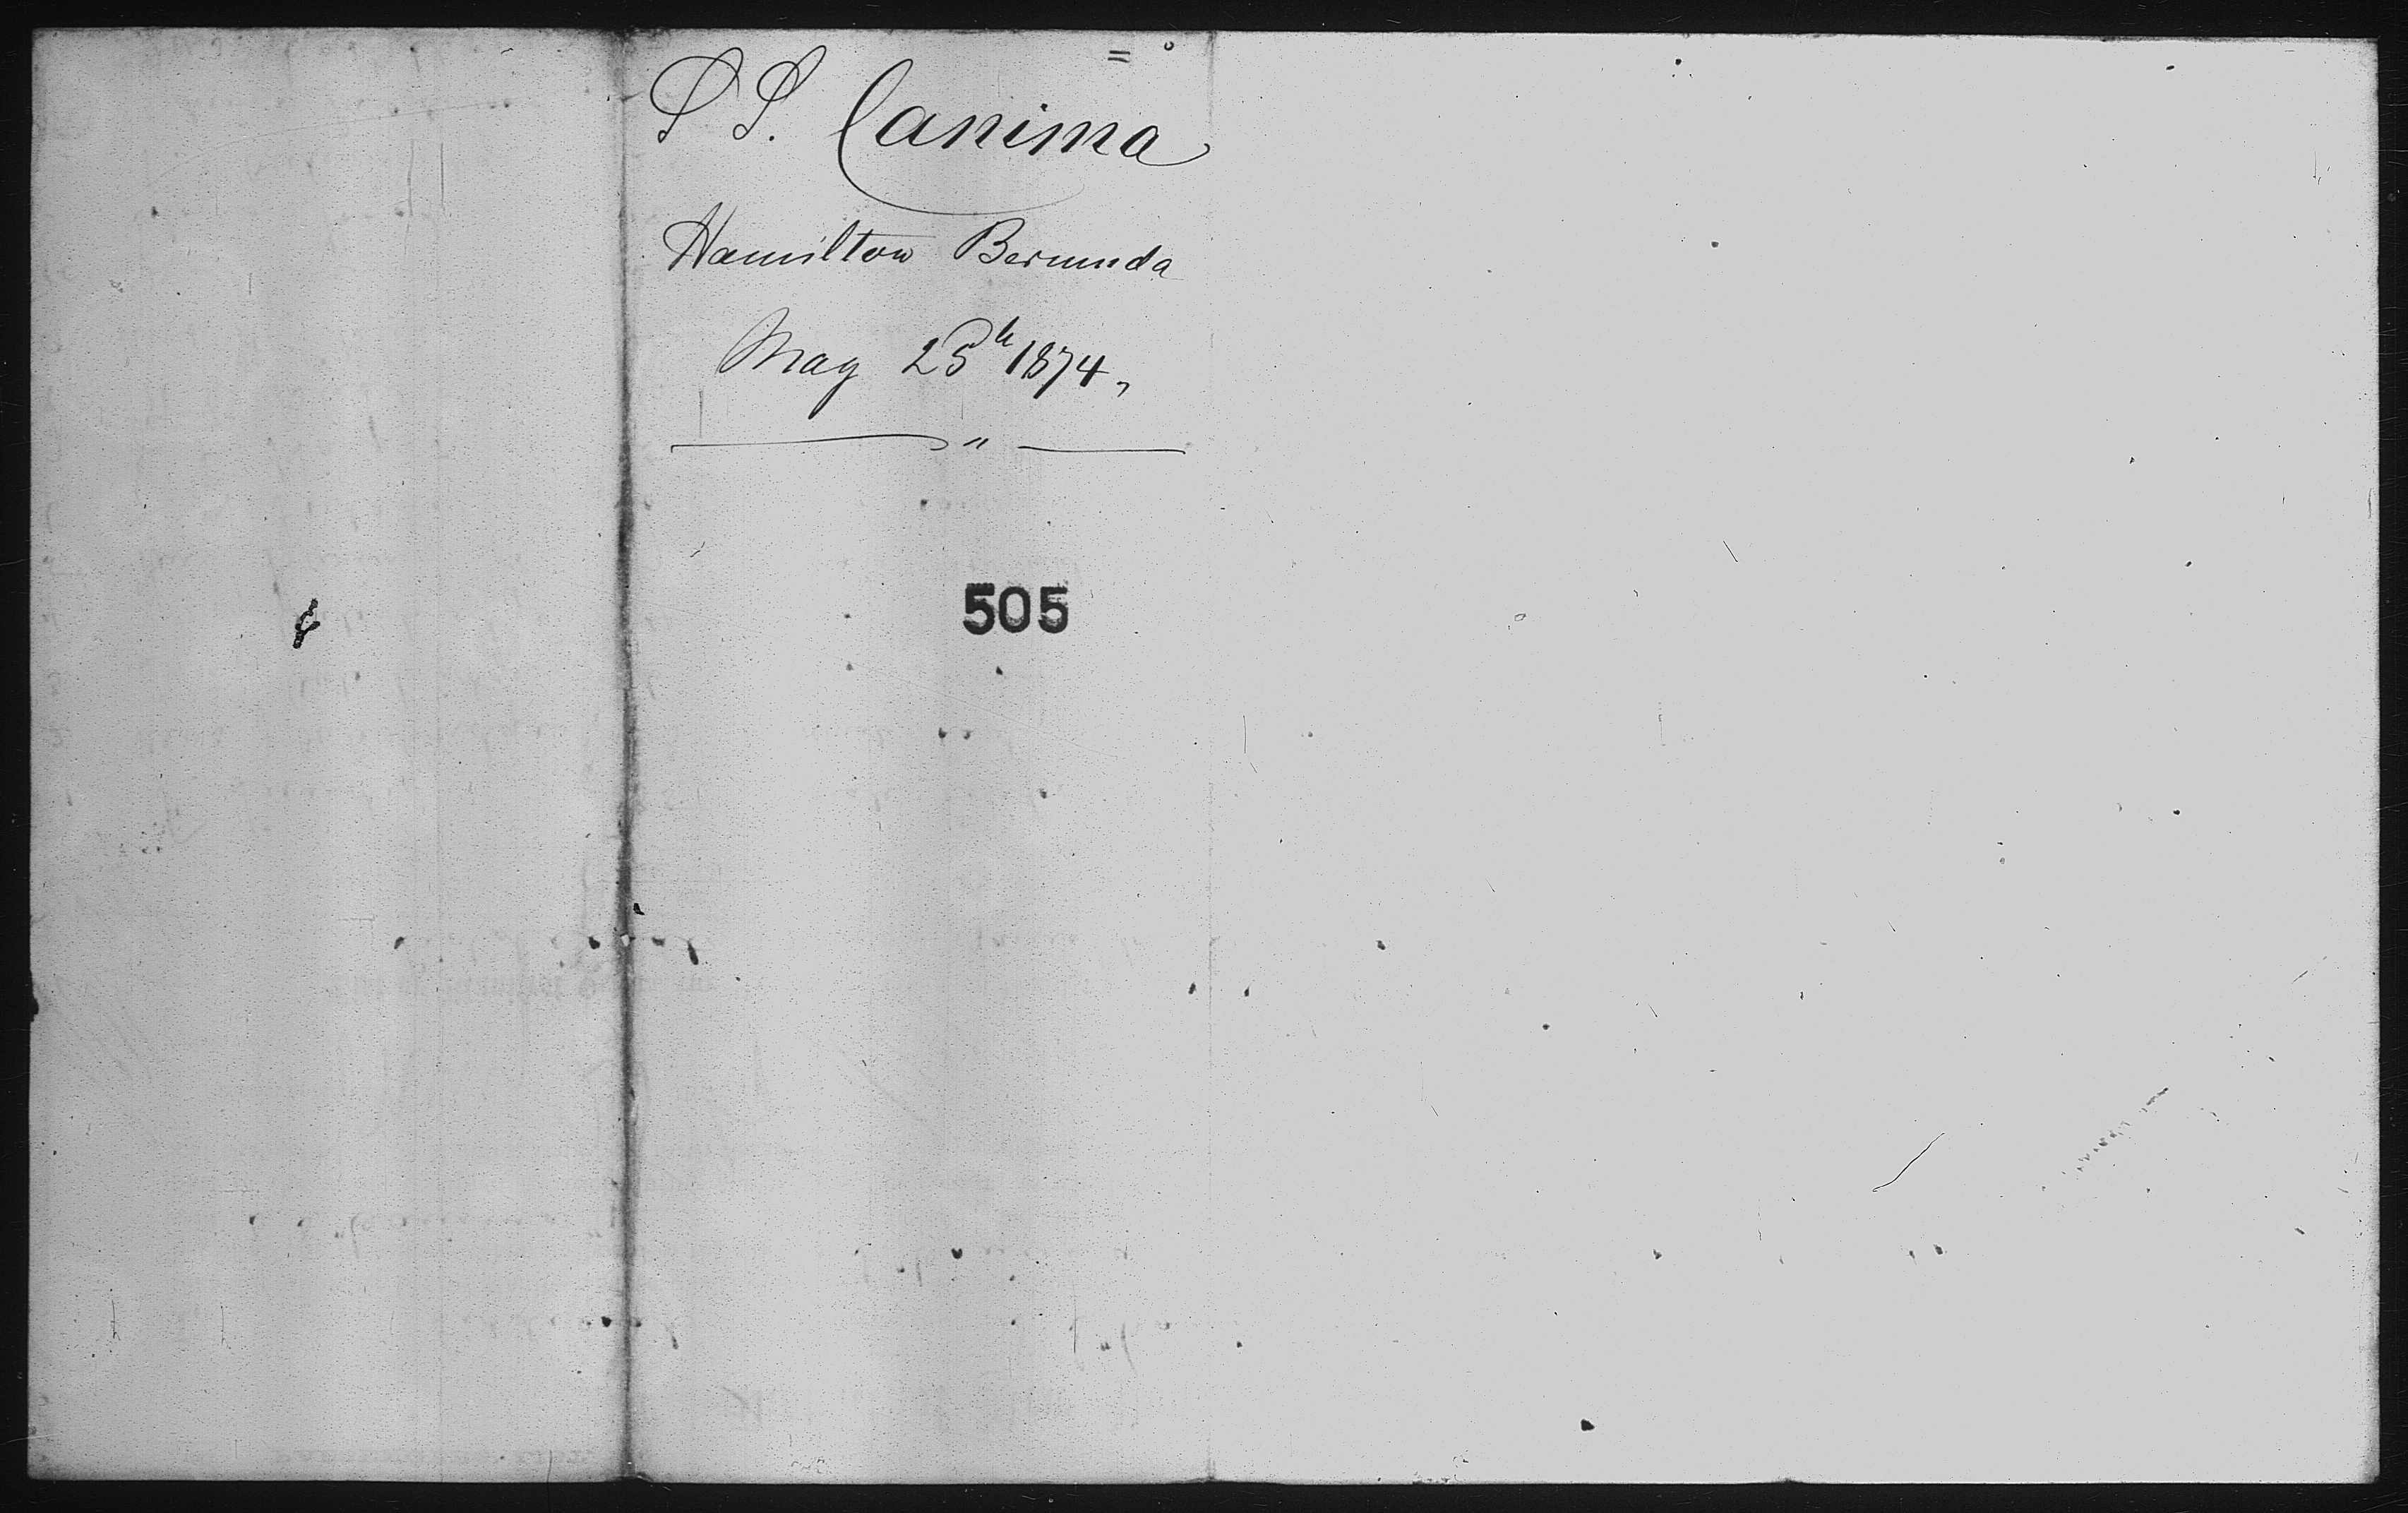 S S. Canima
Hamilton Bermuda
May 25th 1874,
505